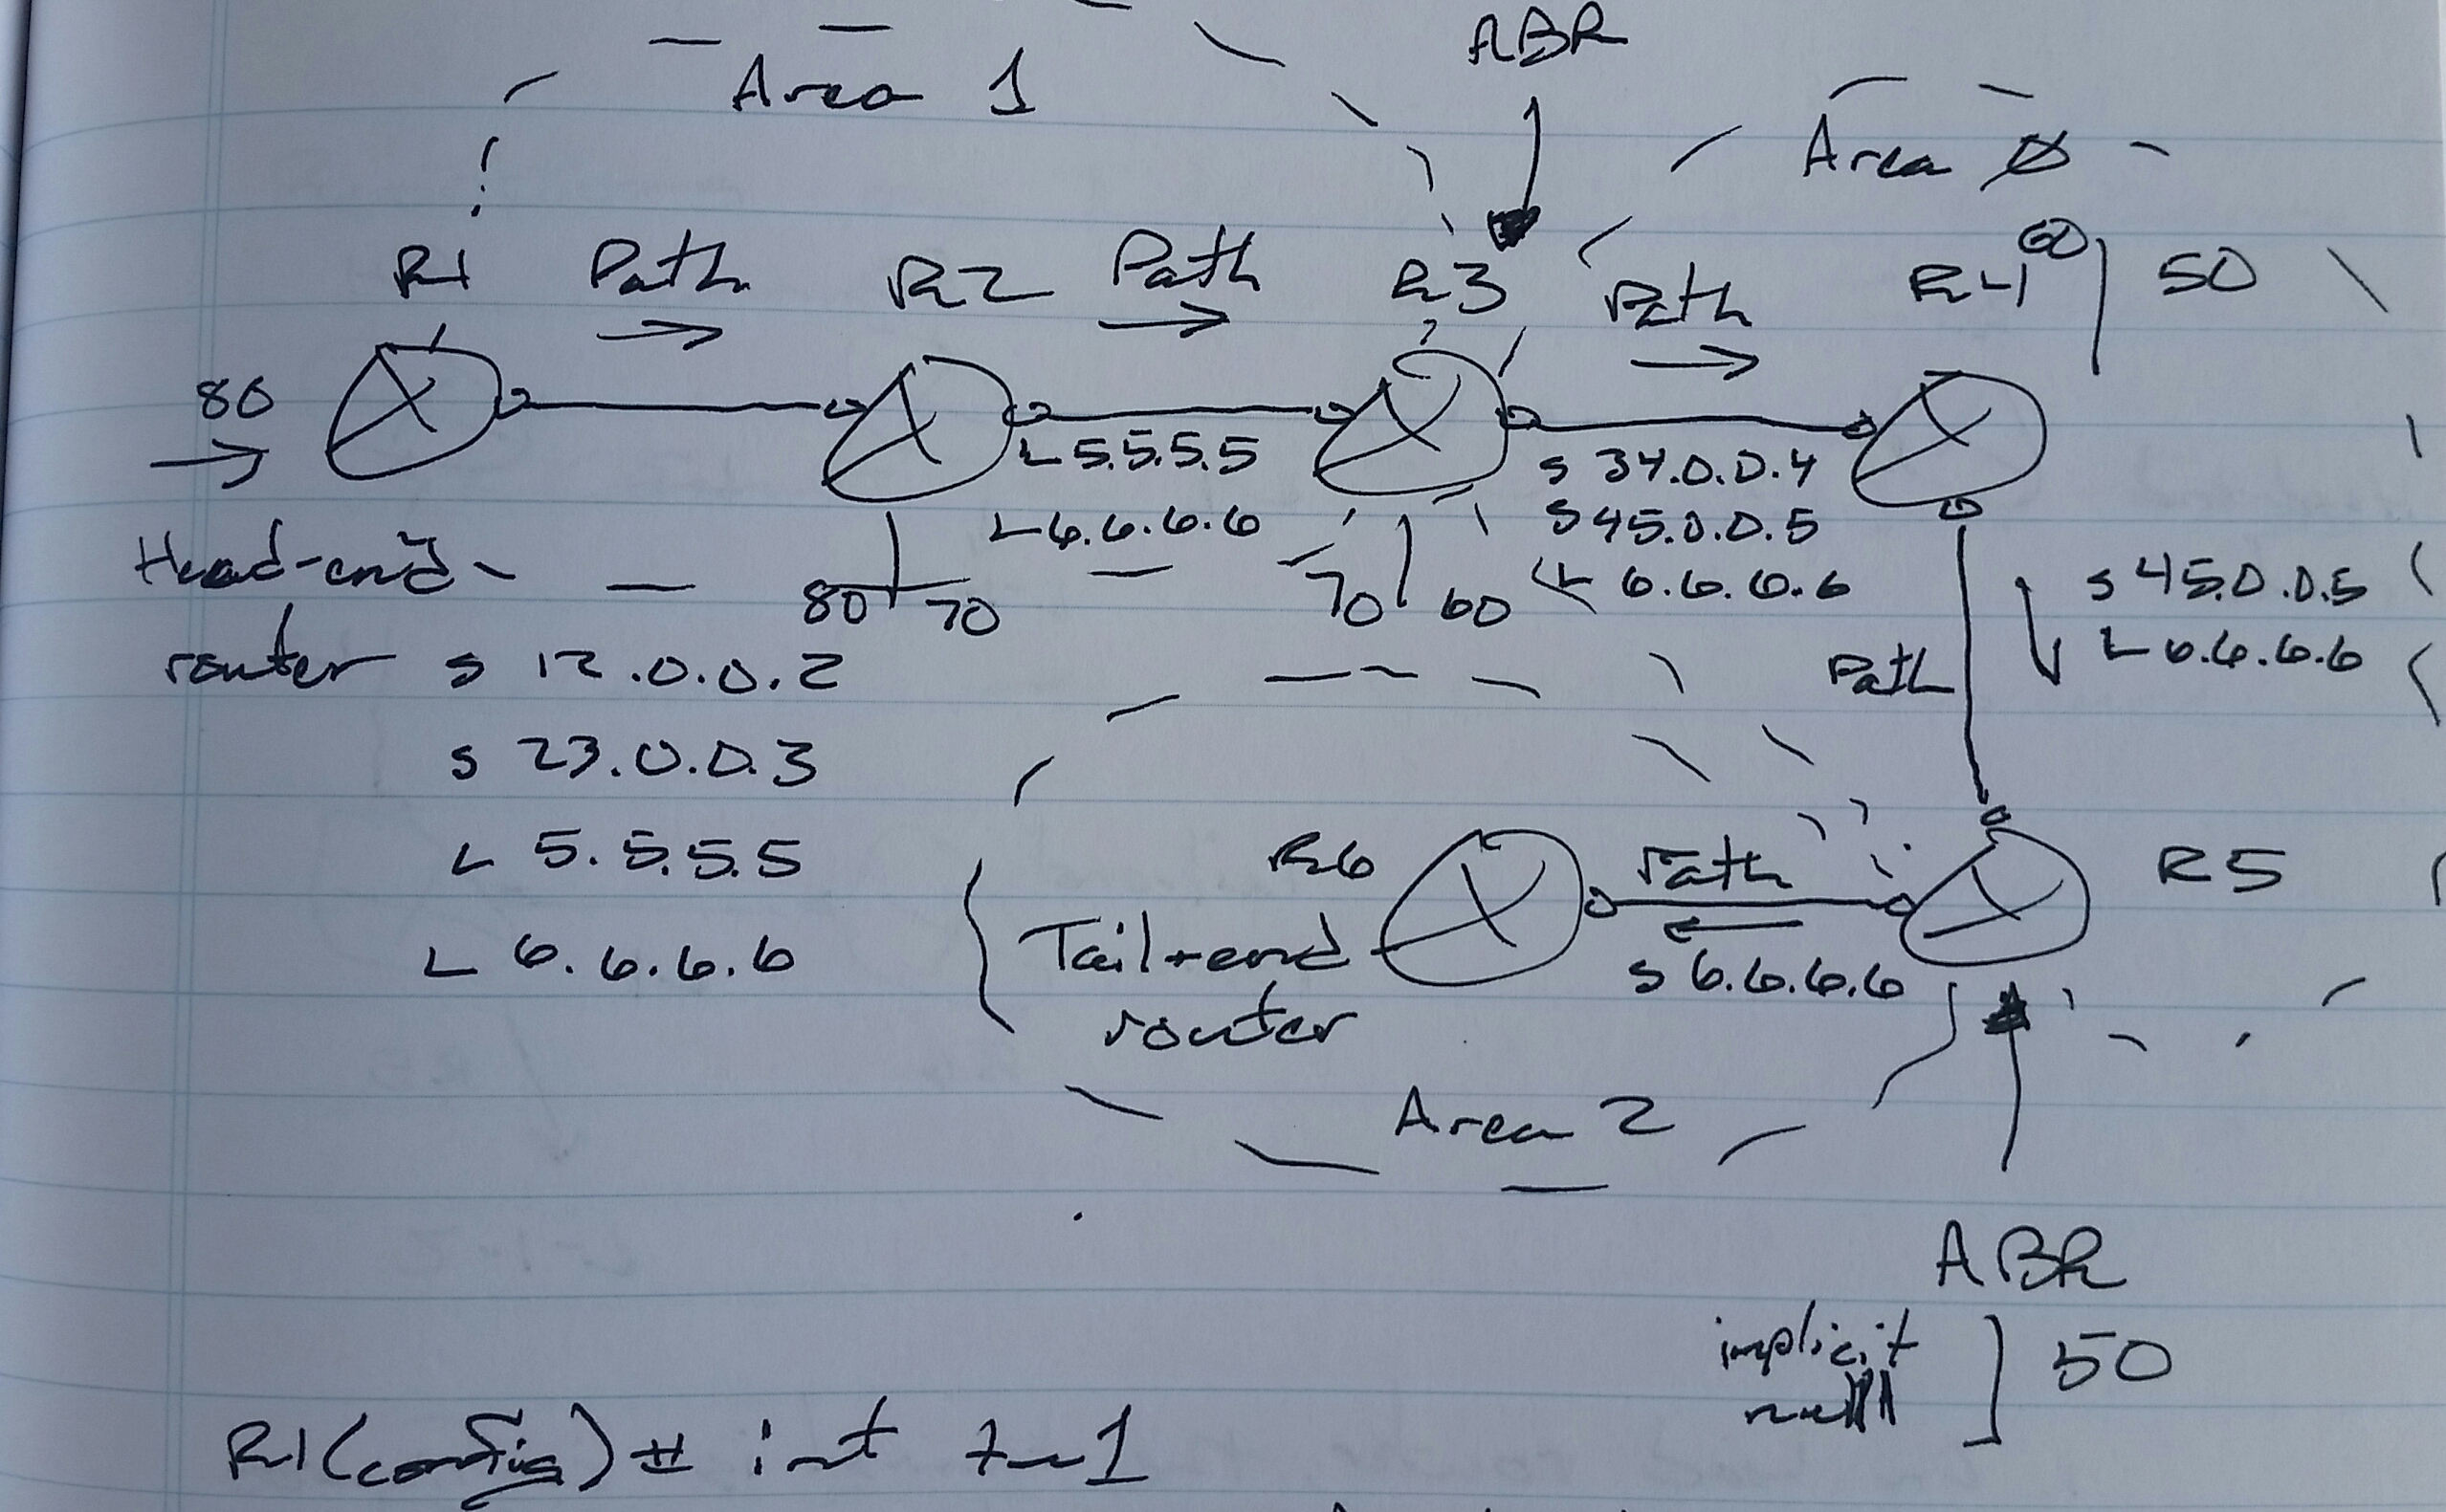 ABR
Area 1
Area Ø
R1 Path R2 Path R3 Path R4 60 50
80
L 5.5.5.5 s 34.0.0.4
L 6.6.6.6 s 45.0.0.5
Head-end 80 70 70 60 L 6.6.6.6 s 45.0.0.5
router s 12.0.0.2 Path L 6.6.6.6
s 23.0.0.3
L 5.5.5.5 R6 Path R5
L 6.6.6.6 Tail-end s 6.6.6.6
router
Area 2
ABR
implicit 50
null
R1(config)# int tu1